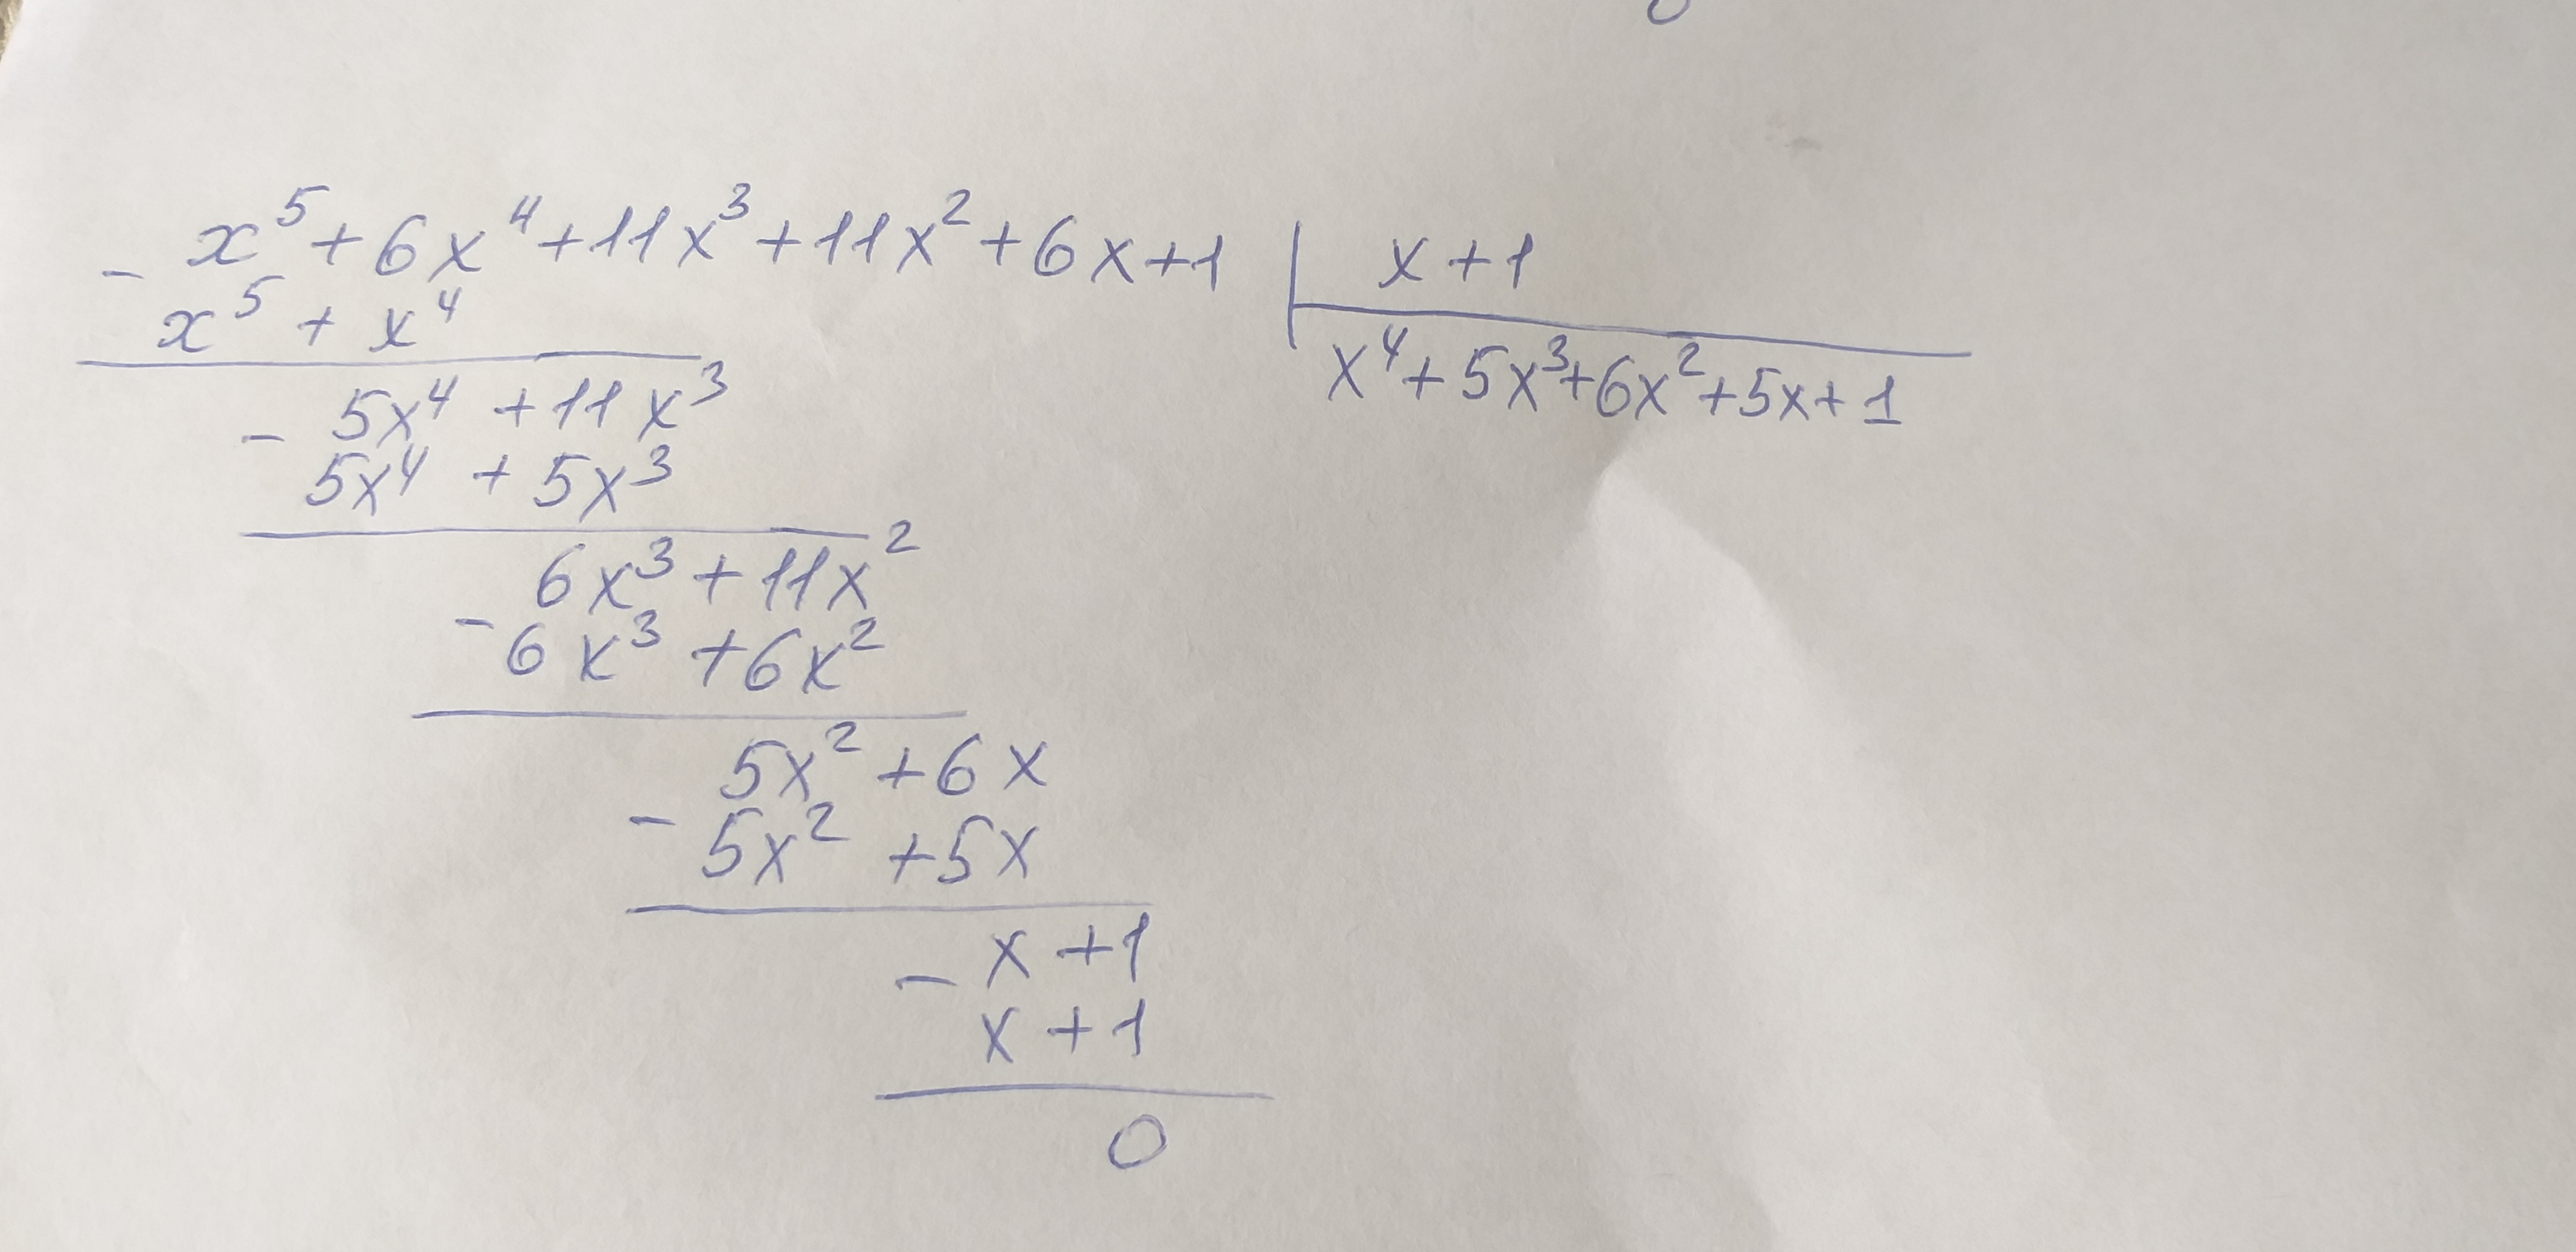 - x⁵+6x⁴+11x³+11x²+6x+1 | x+1
x⁵ + x⁴
x⁴+5x³+6x²+5x+1
- 5x⁴ +11x³
5x⁴ + 5x³
6x³+11x²
- 6x³ +6x²
5x² +6x
- 5x² +5x
- x +1
x +1
0